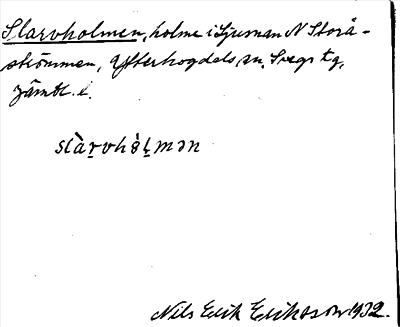 Slarvholmen, holme i Ljusnan N Storå-
strömmen, Ytterhogdals sn, Svegs tg,
Jämtl. l.
slàr̠vhòl̠mən
Nils Erik Eriksson 1932.